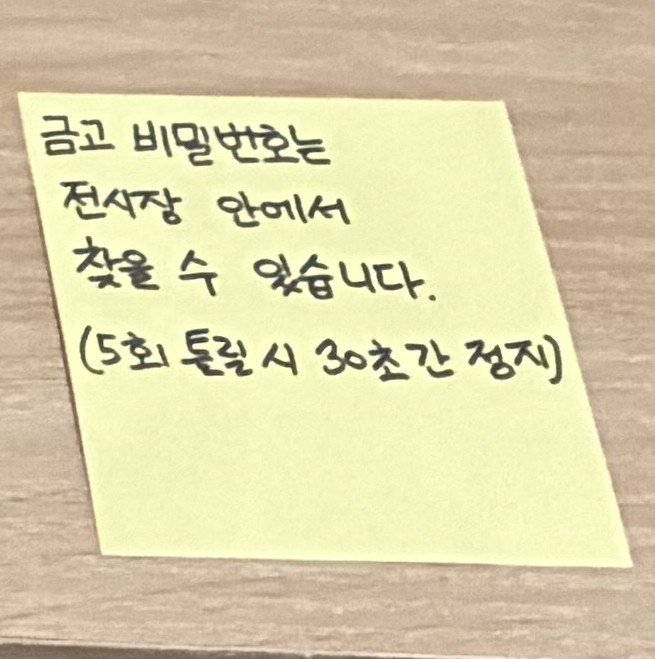 금고 비밀번호는
전시장 안에서
찾을 수 있습니다.
(5회 틀릴 시 30초간 정지)